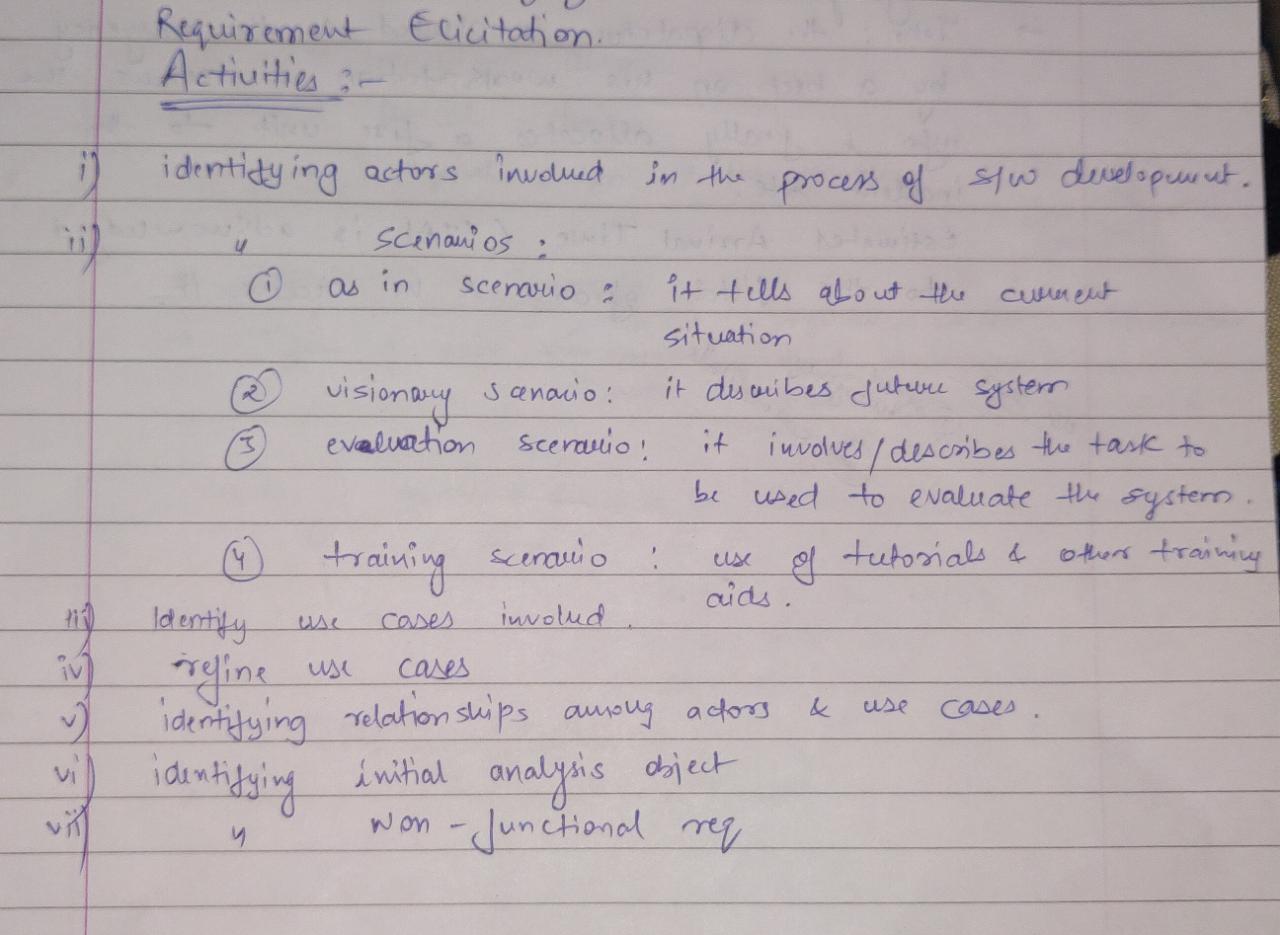 Requirement Elicitation.
Activities :-
i) identifying actors involved in the process of s/w development.
ii) " scenarios :
① as in scenario : it tells about the current
situation
② visionary scenario : it describes future system
③ evaluation scenario : it involves/describes the task to
be used to evaluate the system.
④ training scenario : use of tutorials & other training
aids.
iii) Identify use cases involved.
iv) refine use cases
v) identifying relationships among actors & use cases.
vi) identifying initial analysis object
vii) " Non-functional req